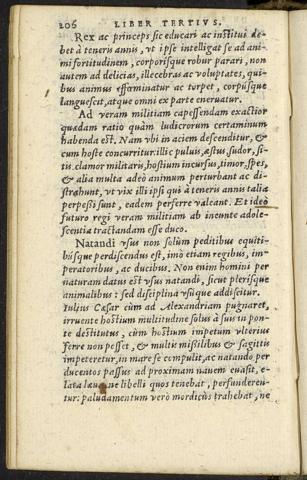 206 LIBER TERTIVS.
Rex ac princeps sic educari ac institui de-
bet à teneris annis, vt ipse intelligat se ad ani-
mi fortitudinem, corporisque robur parari, non
autem ad delicias, illecebras ac voluptates, qui-
bus animus effœminatur ac torpet, corpúsque
languescit, atque omni ex parte eneruatur.
Ad veram militiam capessendam exactior
quædam ratio quàm ludicrorum certaminum
habenda est. Nam vbi in aciem descenditur, &
cum hoste concurritur. illic puluis, æstus, sudor, si-
tis, clamor militaris, hostium incursus, timor, spes,
& alia multa adeò animum perturbant ac di-
strahunt, vt vix illi ipsi qui à teneris annis talia
perpessi sunt, eadem perferre valeant. Et ideò
futuro regi veram militiam ab ineunte adole-
scentia tractandam esse duco.
Natandi vsus non solùm peditibus equiti-
búsque perdiscendus est, imò etiam regibus, im-
peratoribus, ac ducibus. Non enim homini per
naturam datus est vsus natandi, sicut plerisque
animalibus: sed disciplina vsúque addiscitur.
Iulius Cæsar cùm ad Alexandriam pugnaret,
irruente hostium multitudine solus à suis in pon-
te destitutus, cùm hostium impetum vlterius
ferre non posset, & multis missilibus & sagittis
impeteretur, in mare se compulit, ac natando per
ducentos passus ad proximam nauem euasit, e-
lata læua, ne libelli quos tenebat, perfunderen-
tur: paludamentum verò mordicùs trahebat, ne